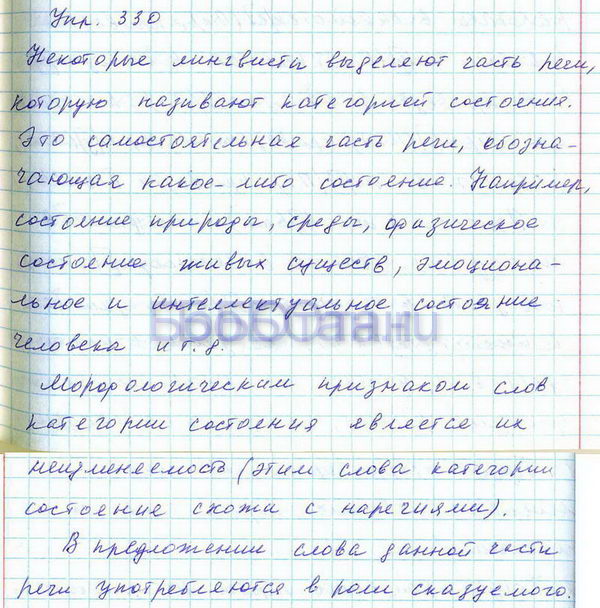 Упр. 330
Некоторые лингвисты выделяют часть речи,
которую называют категорией состояния.
Это самостоятельная часть речи, обозна-
чающая какое-либо состояние. Например,
состояние природы, среды, физическое
состояние живых существ, эмоциона-
льное и интеллектуальное состояние
человека и т. д.
Морфологическим признаком слов
категории состояния является их
неизменяемость (этим слова категории
состояние схожи с наречиями).
В предложении слова данной части
речи употребляются в роли сказуемого.